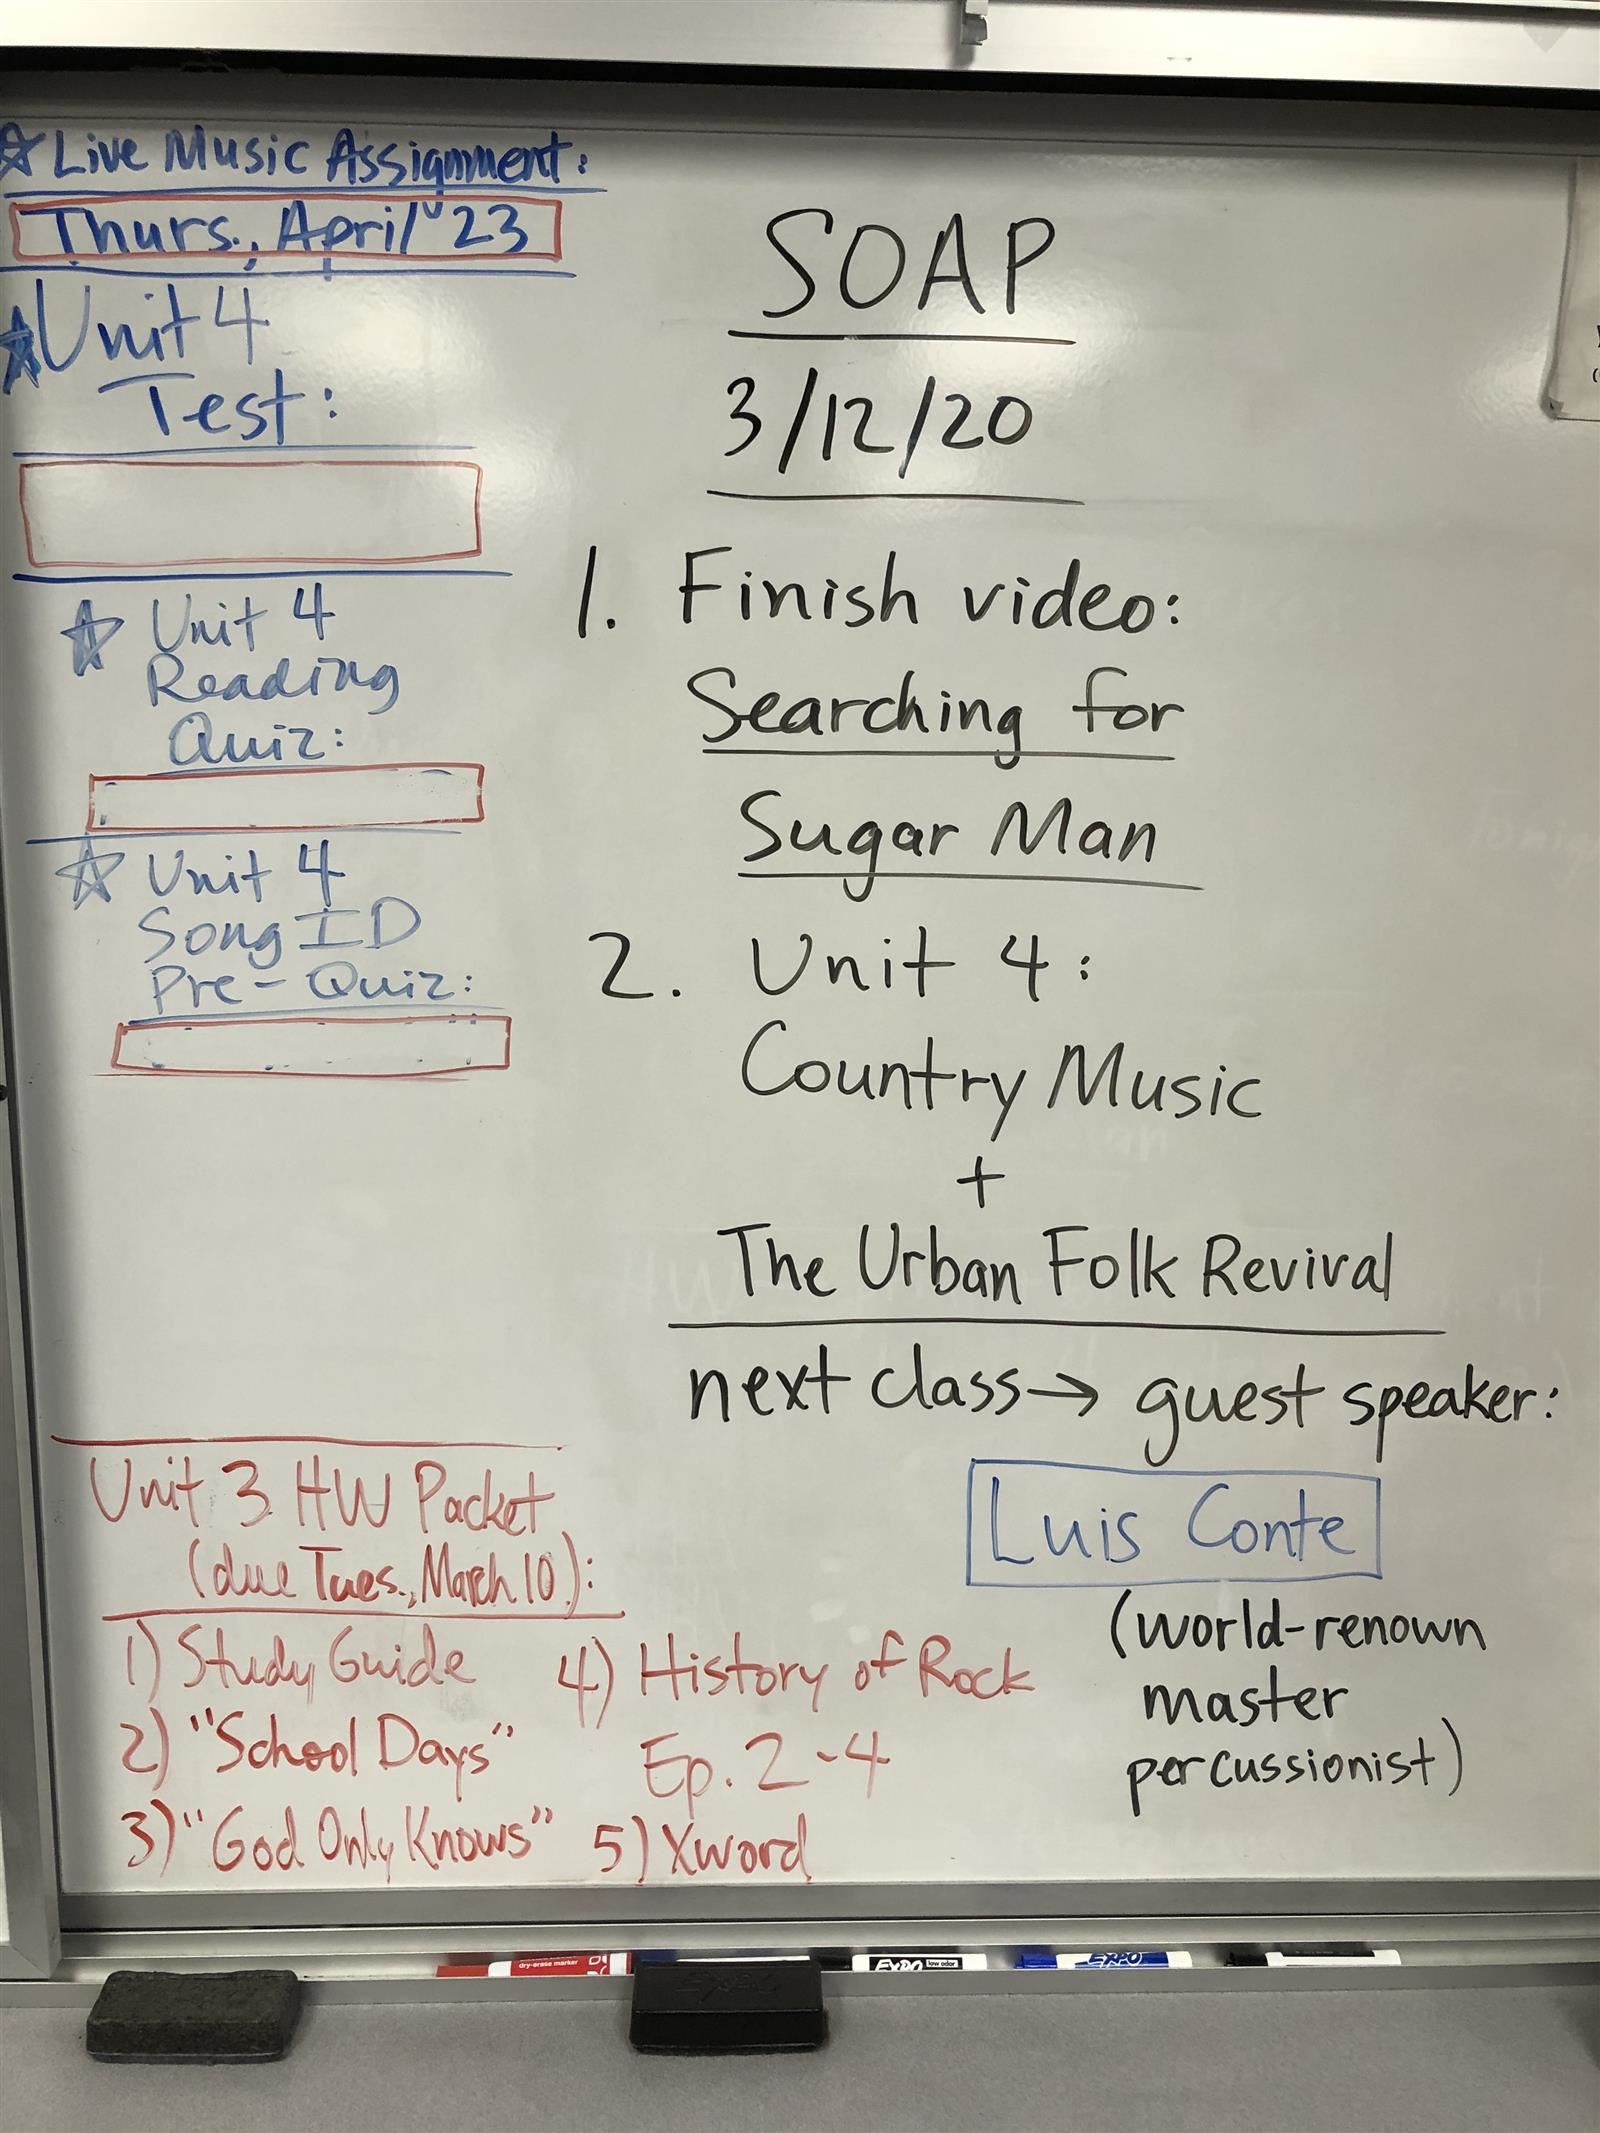 ☆ Live Music Assignment:
Thurs., April 23
★ Unit 4
Test:
☆ Unit 4
Reading
Quiz:
☆ Unit 4
Song ID
Pre-Quiz:
SOAP
3/12/20
1. Finish video:
Searching for
Sugar Man
2. Unit 4:
Country Music
+
The Urban Folk Revival
next class → guest speaker:
Luis Conte
(world-renown
master
percussionist)
Unit 3 HW Packet
(due Tues., March 10):
1) Study Guide
2) "School Days"
3) "God Only Knows"
4) History of Rock
Ep. 2-4
5) Xword
dry-erase marker
EXPO
EXPO low odor
EXPO